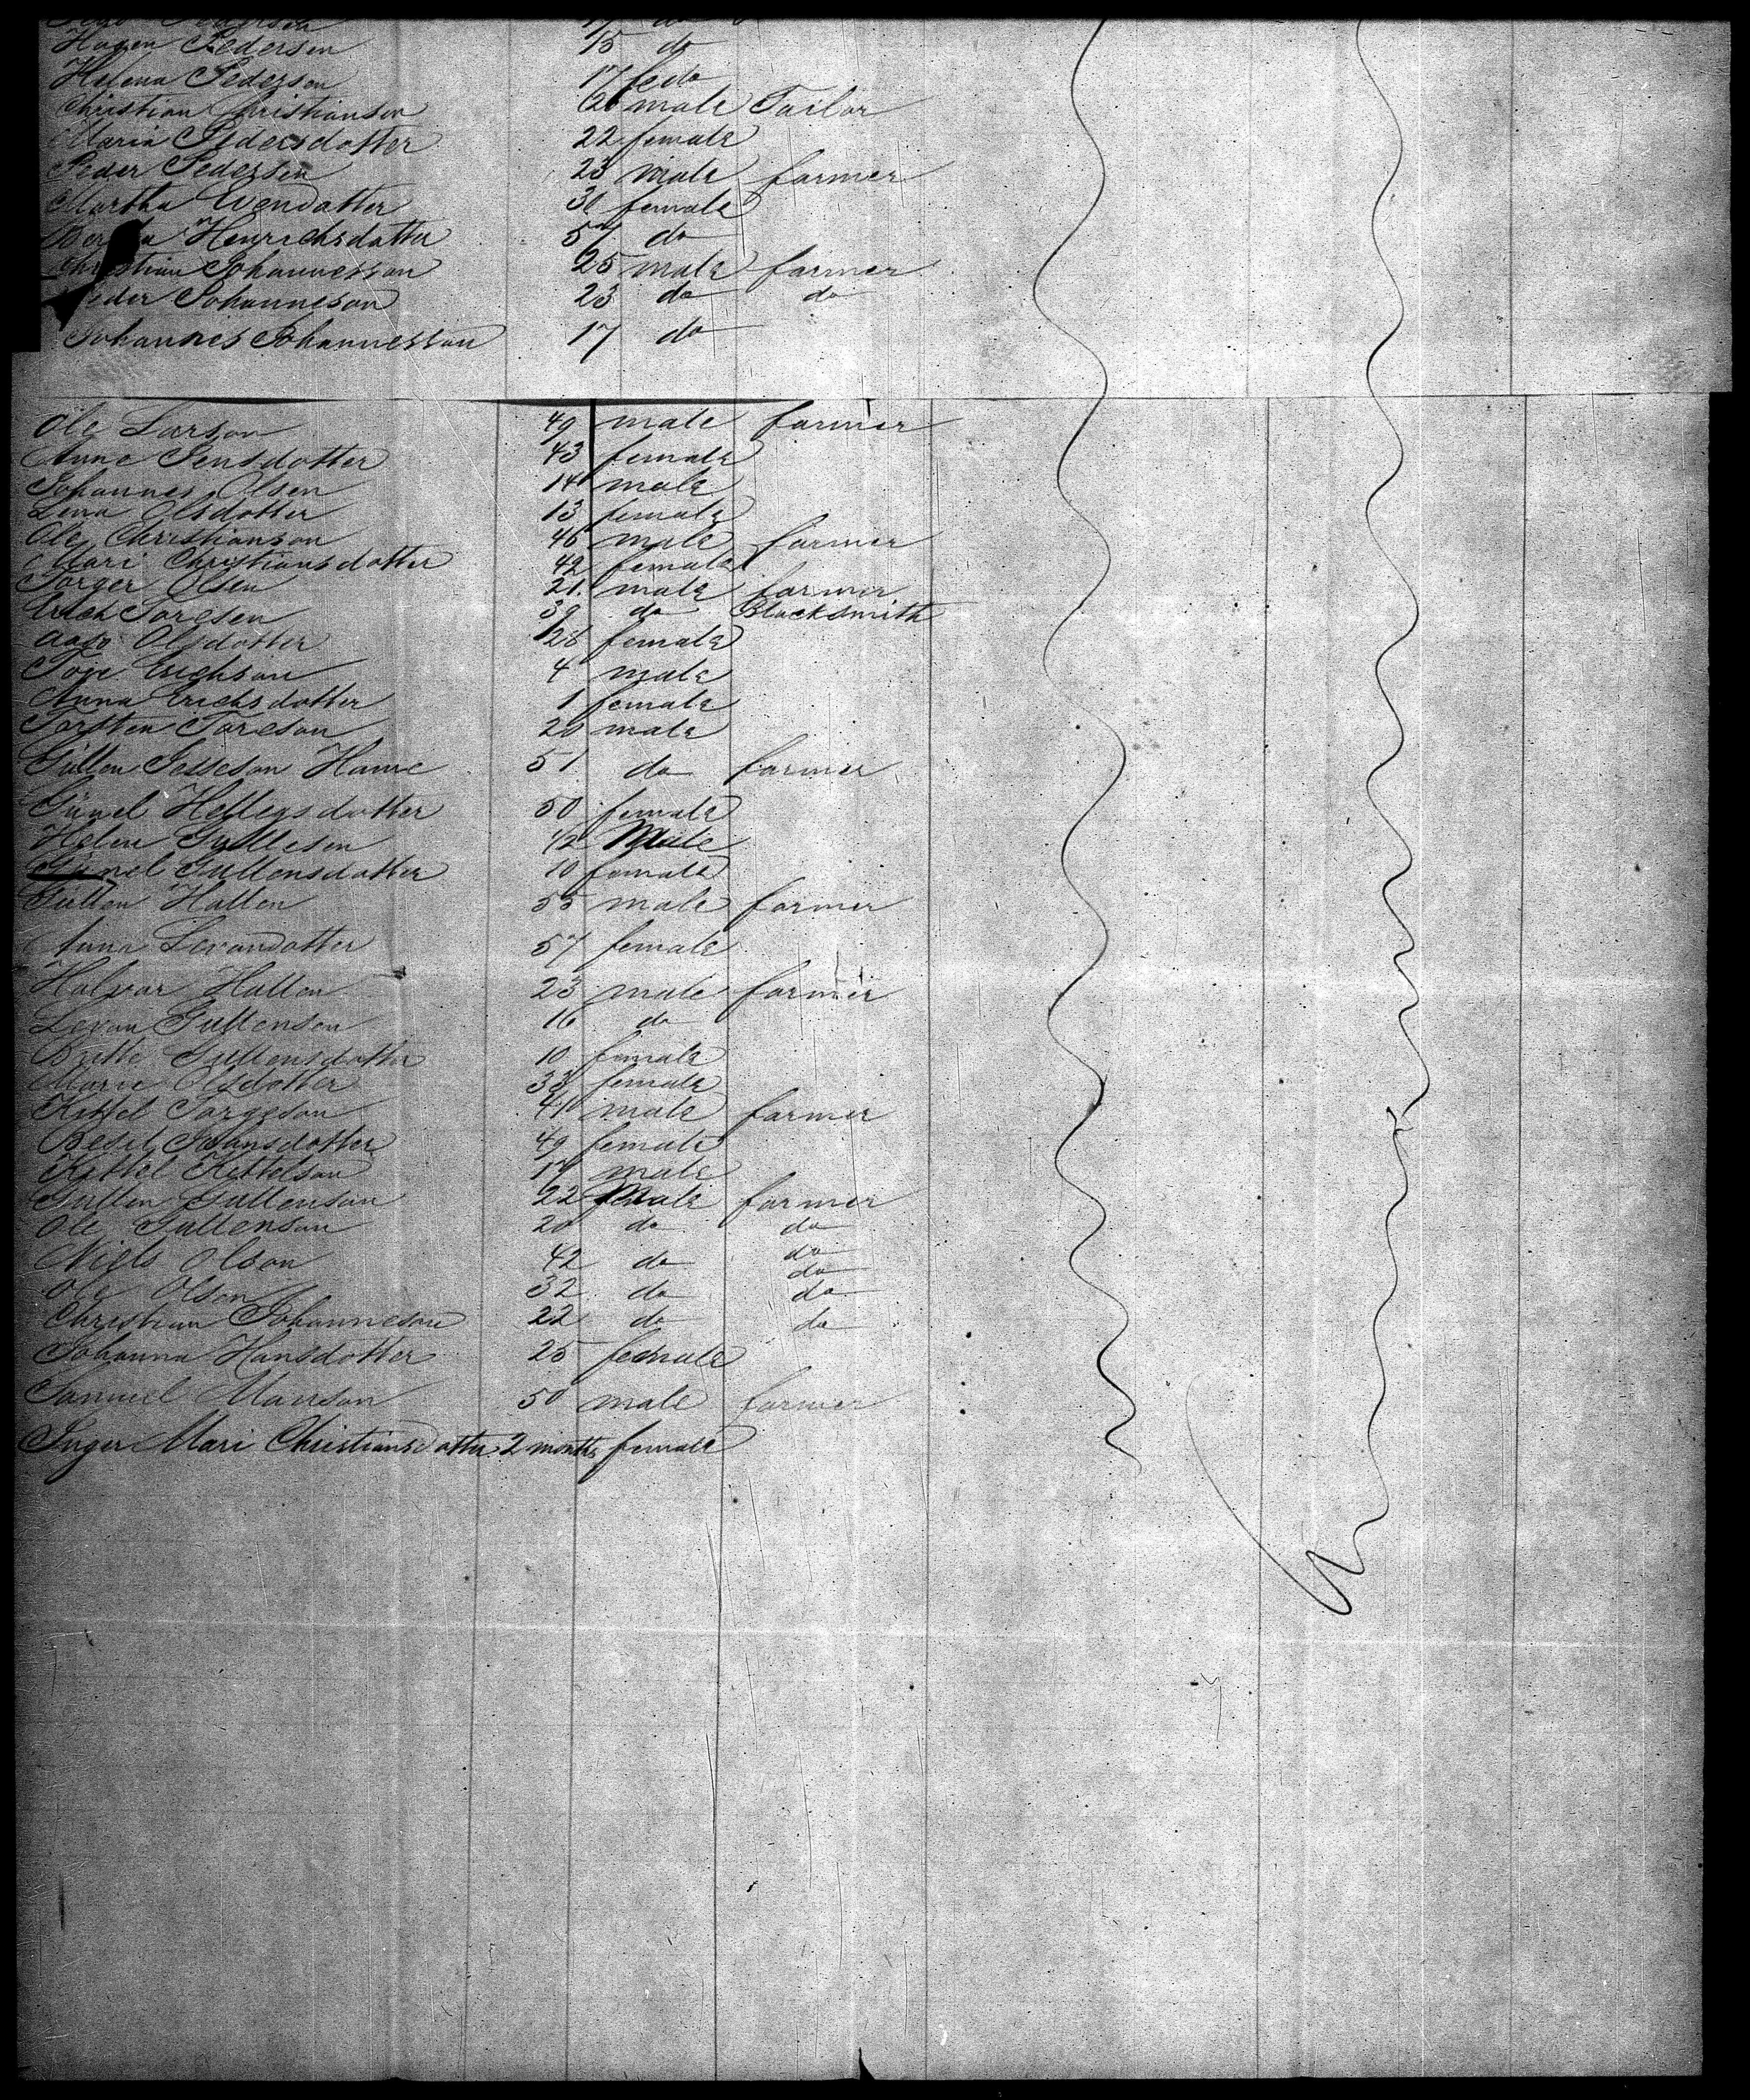 Pedersen
Hagen Pedersen 15 do
Helena Pederson 17 fe do
Christian Christianson 26 male Tailor
Maria Pedersdotter 22 female
Peder Pedersen 23 male farmer
Martha Evendatter 30 female
Henrichsdatter 57 do
Christian Johannesson 25 male farmer
Peder Johanneson 23 do do
Johannes Johannesson 17 do
Ole Larson 49 male farmer
Anne Jensdotter 43 female
Johannes Olsen 14 male
Lena Olsdotter 13 female
Ole Christianson 46 male farmer
Mari Christiansdotter 42 female
Torger Olsen 21 male farmer
Toresen 39 do Blacksmith
Olsdotter 28 female
Tore Erichson 4 male
Anna Erichsdotter 1 female
Torsten Toreson 20 male
Gullen Jesseson 51 do farmer
Gunel Hellegsdotter 50 female
Gullesen 12 Male
Gunel Gullensdatter 10 female
Gullen Hallen 55 male farmer
Anna Levandotter 57 female
Halvar Hallen 23 male farmer
Levan Gullenson 16 do
Britte Gullensdotter 10 female
Marie Olsdotter 33 female
Kittel Torgeson 41 male farmer
49 female
Kittel Kittelson 17 male
Gullen Gullenson 22 Male farmer
Ole Gullenson 20 do do
Niels Olson 42 do do
do
Ole Olson 32 do do
Christian Johanneson 22 do do
Johanna Hansdotter 25 female
Samuel Manson 50 male farmer
Inger Mari Christiansdatter 2 months female